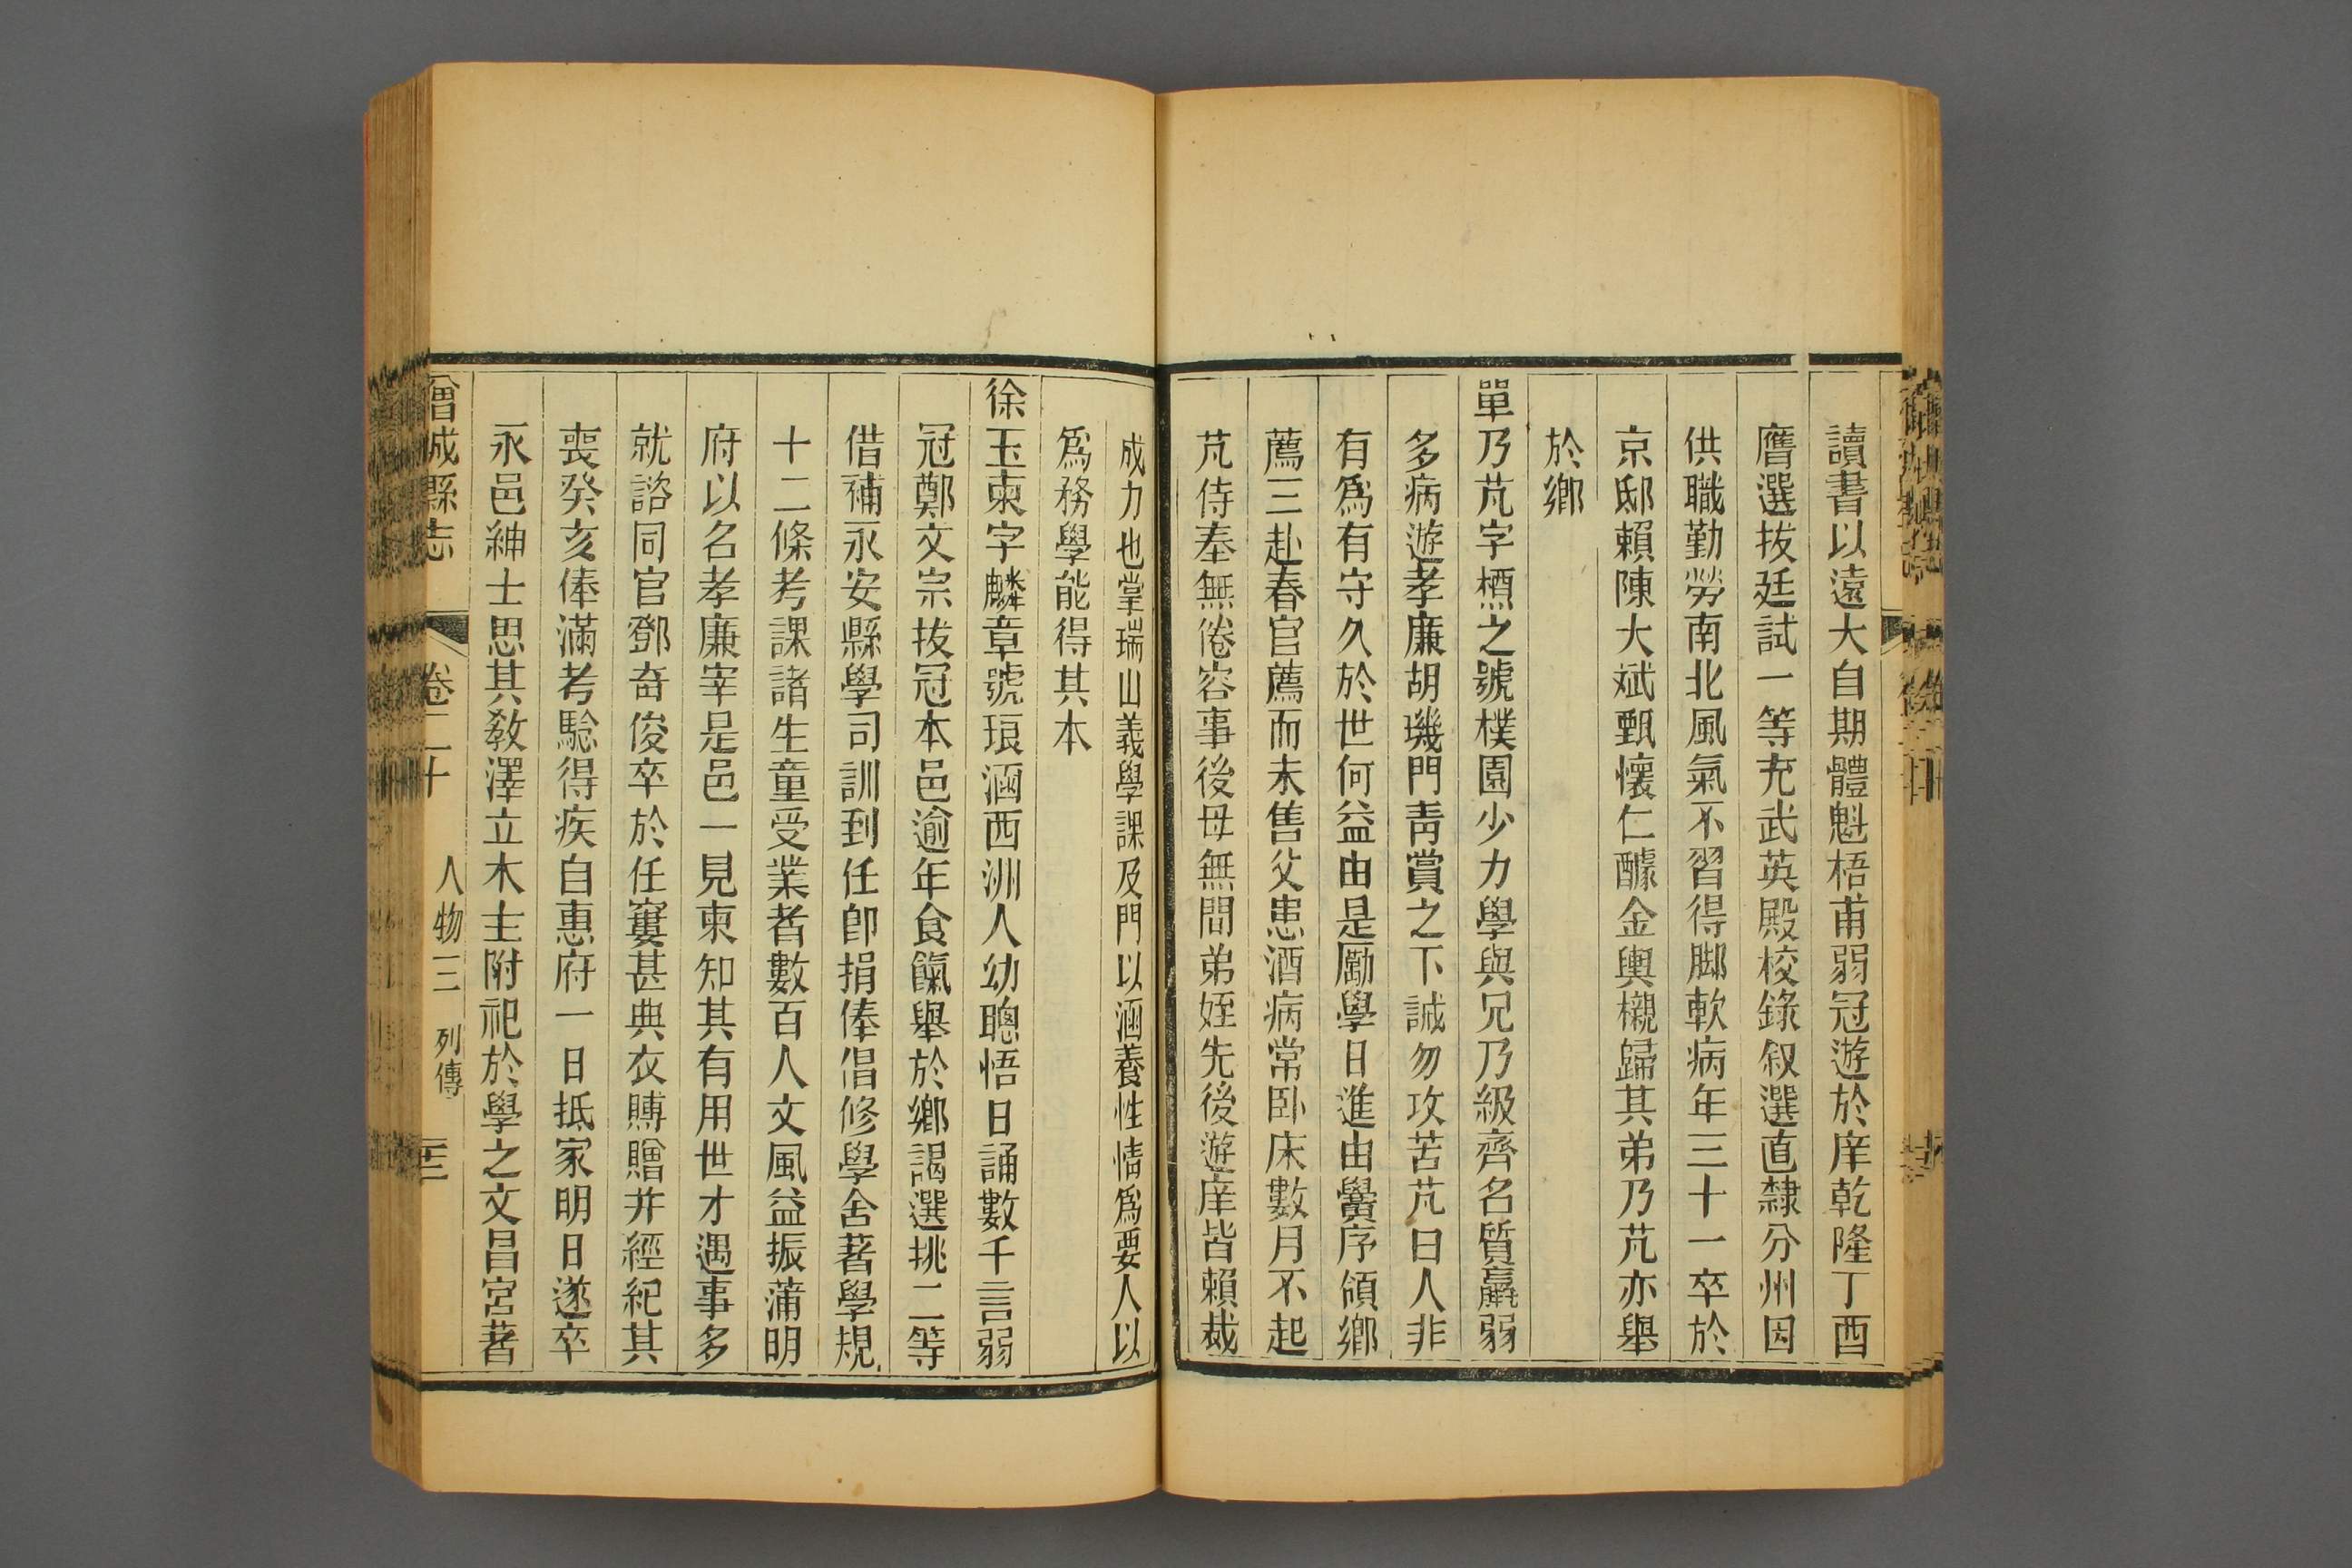 讀書以遠大自期體魁梧甫弱冠遊於庠乾隆丁酉
膺選拔廷試一等充武英殿校錄叙選直隸分州因
供職勤勞南北風氣不習得脚軟病年三十一卒於
京邸賴陳大斌甄懷仁醵金輿櫬歸其弟乃芃亦舉
於鄉
單乃芃字槱之號樸園少力學與兄乃級齊名質羸弱
多病遊孝廉胡璣門靑賞之下誠勿攻苦芃曰人非
有爲有守久於世何益由是勵學日進由黌序領鄉
薦三赴春官薦而未售父患酒病常卧床數月不起
芃侍奉無倦容事後母無間弟姪先後遊庠皆賴裁
成力也掌瑞山義學課及門以涵養性情爲要人以
爲務學能得其本
徐玉柬字麟章號琅涵西洲人幼聰悟日誦數千言弱
冠鄭文宗拔冠本邑逾年食餼舉於鄉謁選挑二等
借補永安縣學司訓到任卽捐俸倡修學舍著學規
十二條考課諸生童受業者數百人文風益振蒲明
府以名孝廉宰是邑一見柬知其有用世才遇事多
就諮同官鄧奇俊卒於任窶甚典衣賻贈并經紀其
喪癸亥俸滿考驗得疾自惠府一日抵家明日遂卒
永邑紳士思其敎澤立木主附祀於學之文昌宮著
增城縣志 卷二十 人物三 列傳